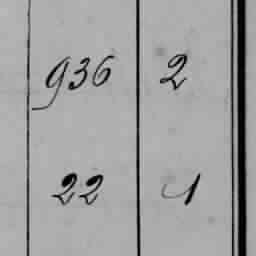 936 2
22 1